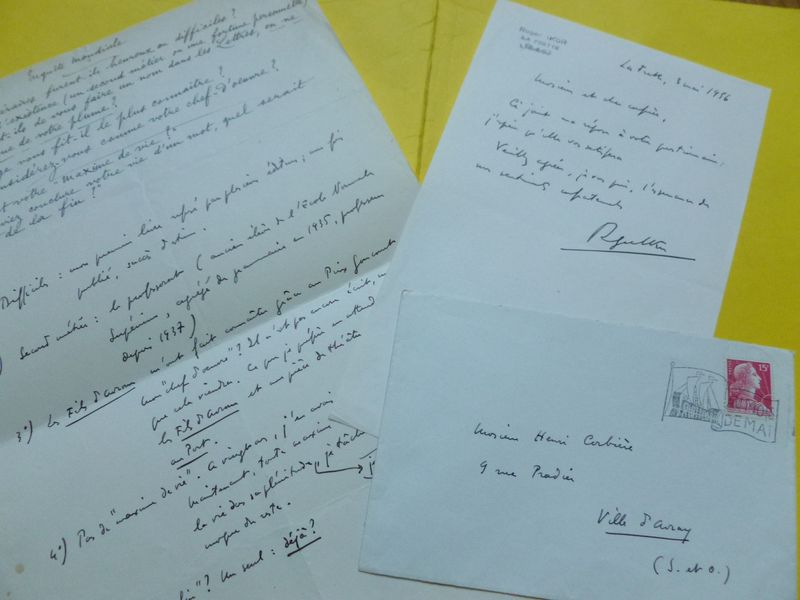 Enquête mondiale
furent-ils heureux ou difficiles?
d'existence (un second métier ou une fortune personnelle)
-ils de vous faire un nom dans les Lettres, ou ne
de votre plume?
vous fit-il le plus connaître?
considérez-vous comme votre chef-d'oeuvre?
votre maxime de vie?
conclure votre vie d'un mot, quel serait
de la fin?
Difficiles : mon premier livre refusé par plusieurs éditeurs ; une fois
publié, succès d'estime.
Second métier : le professorat (ancien élève de l'École Normale
Supérieure, agrégé de grammaire en 1935, professeur
depuis 1937)
3°) Les Fils d'Avrom m'ont fait connaître grâce au Prix Goncourt
Mon "chef d'oeuvre"? Il n'est pas encore écrit,
que cela viendra. Ce que je préfère en attendant
les Fils d'Avrom et une pièce de théâtre
au Port.
4°) Pas de "maxime de vie". A vingt ans, j'en avais
maintenant, toute maxime
la vie dans sa plénitude, je tâche
moque du reste.
fin"? Un seul : déjà?
Roger IKOR
La Frette, 3 mai 1956
Monsieur et cher confrère,
Ci-joint ma réponse à votre questionnaire.
J'espère qu'elle vous satisfera
Veuillez agréer, je vous prie, l'assurance de
mes sentiments
15F
Monsieur Henri Corbière
9 rue Pradier
Ville d'Avray
(S. et O.)